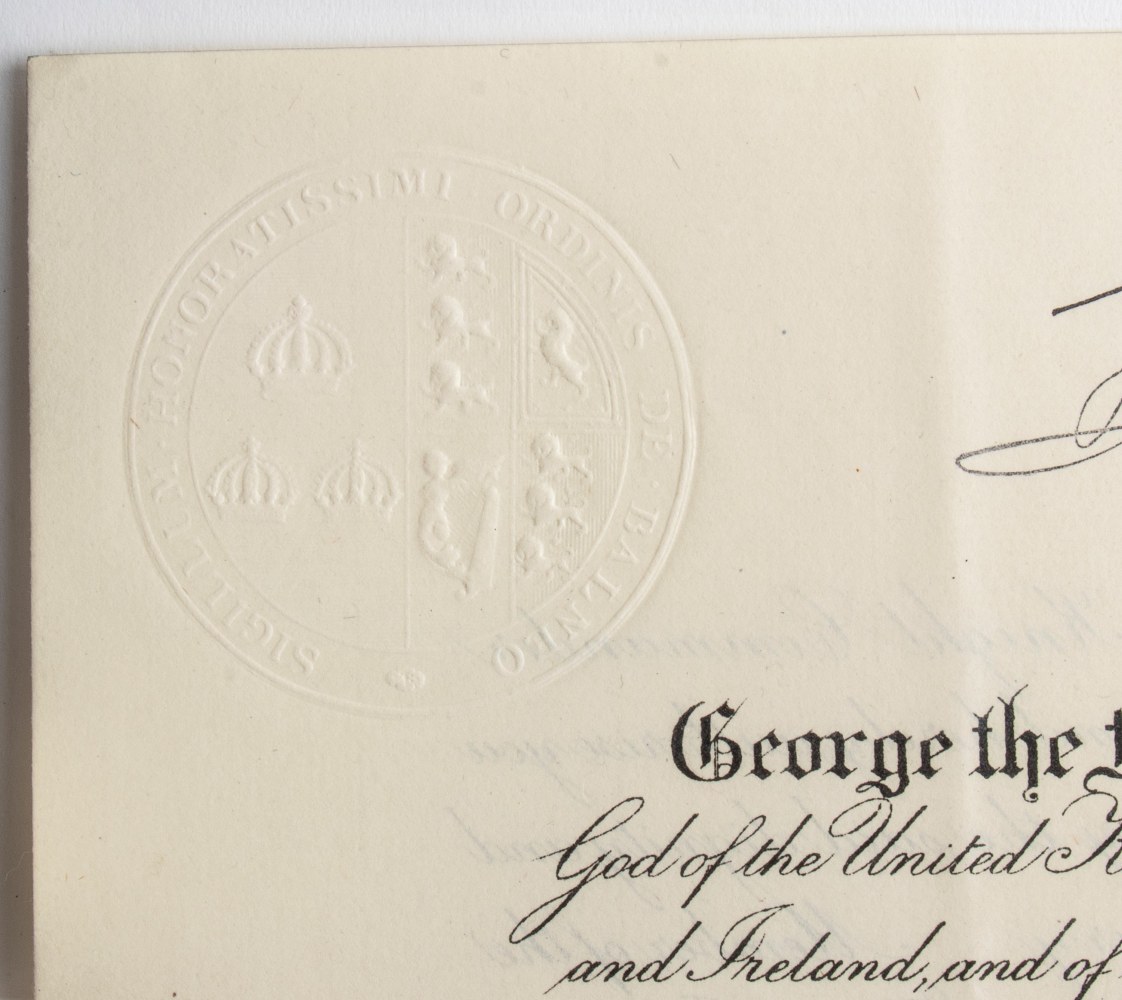 SIGILLUM · HONORATISSIMI ORDINIS · DE · BALNEO
George the
God of the United
and Ireland, and of